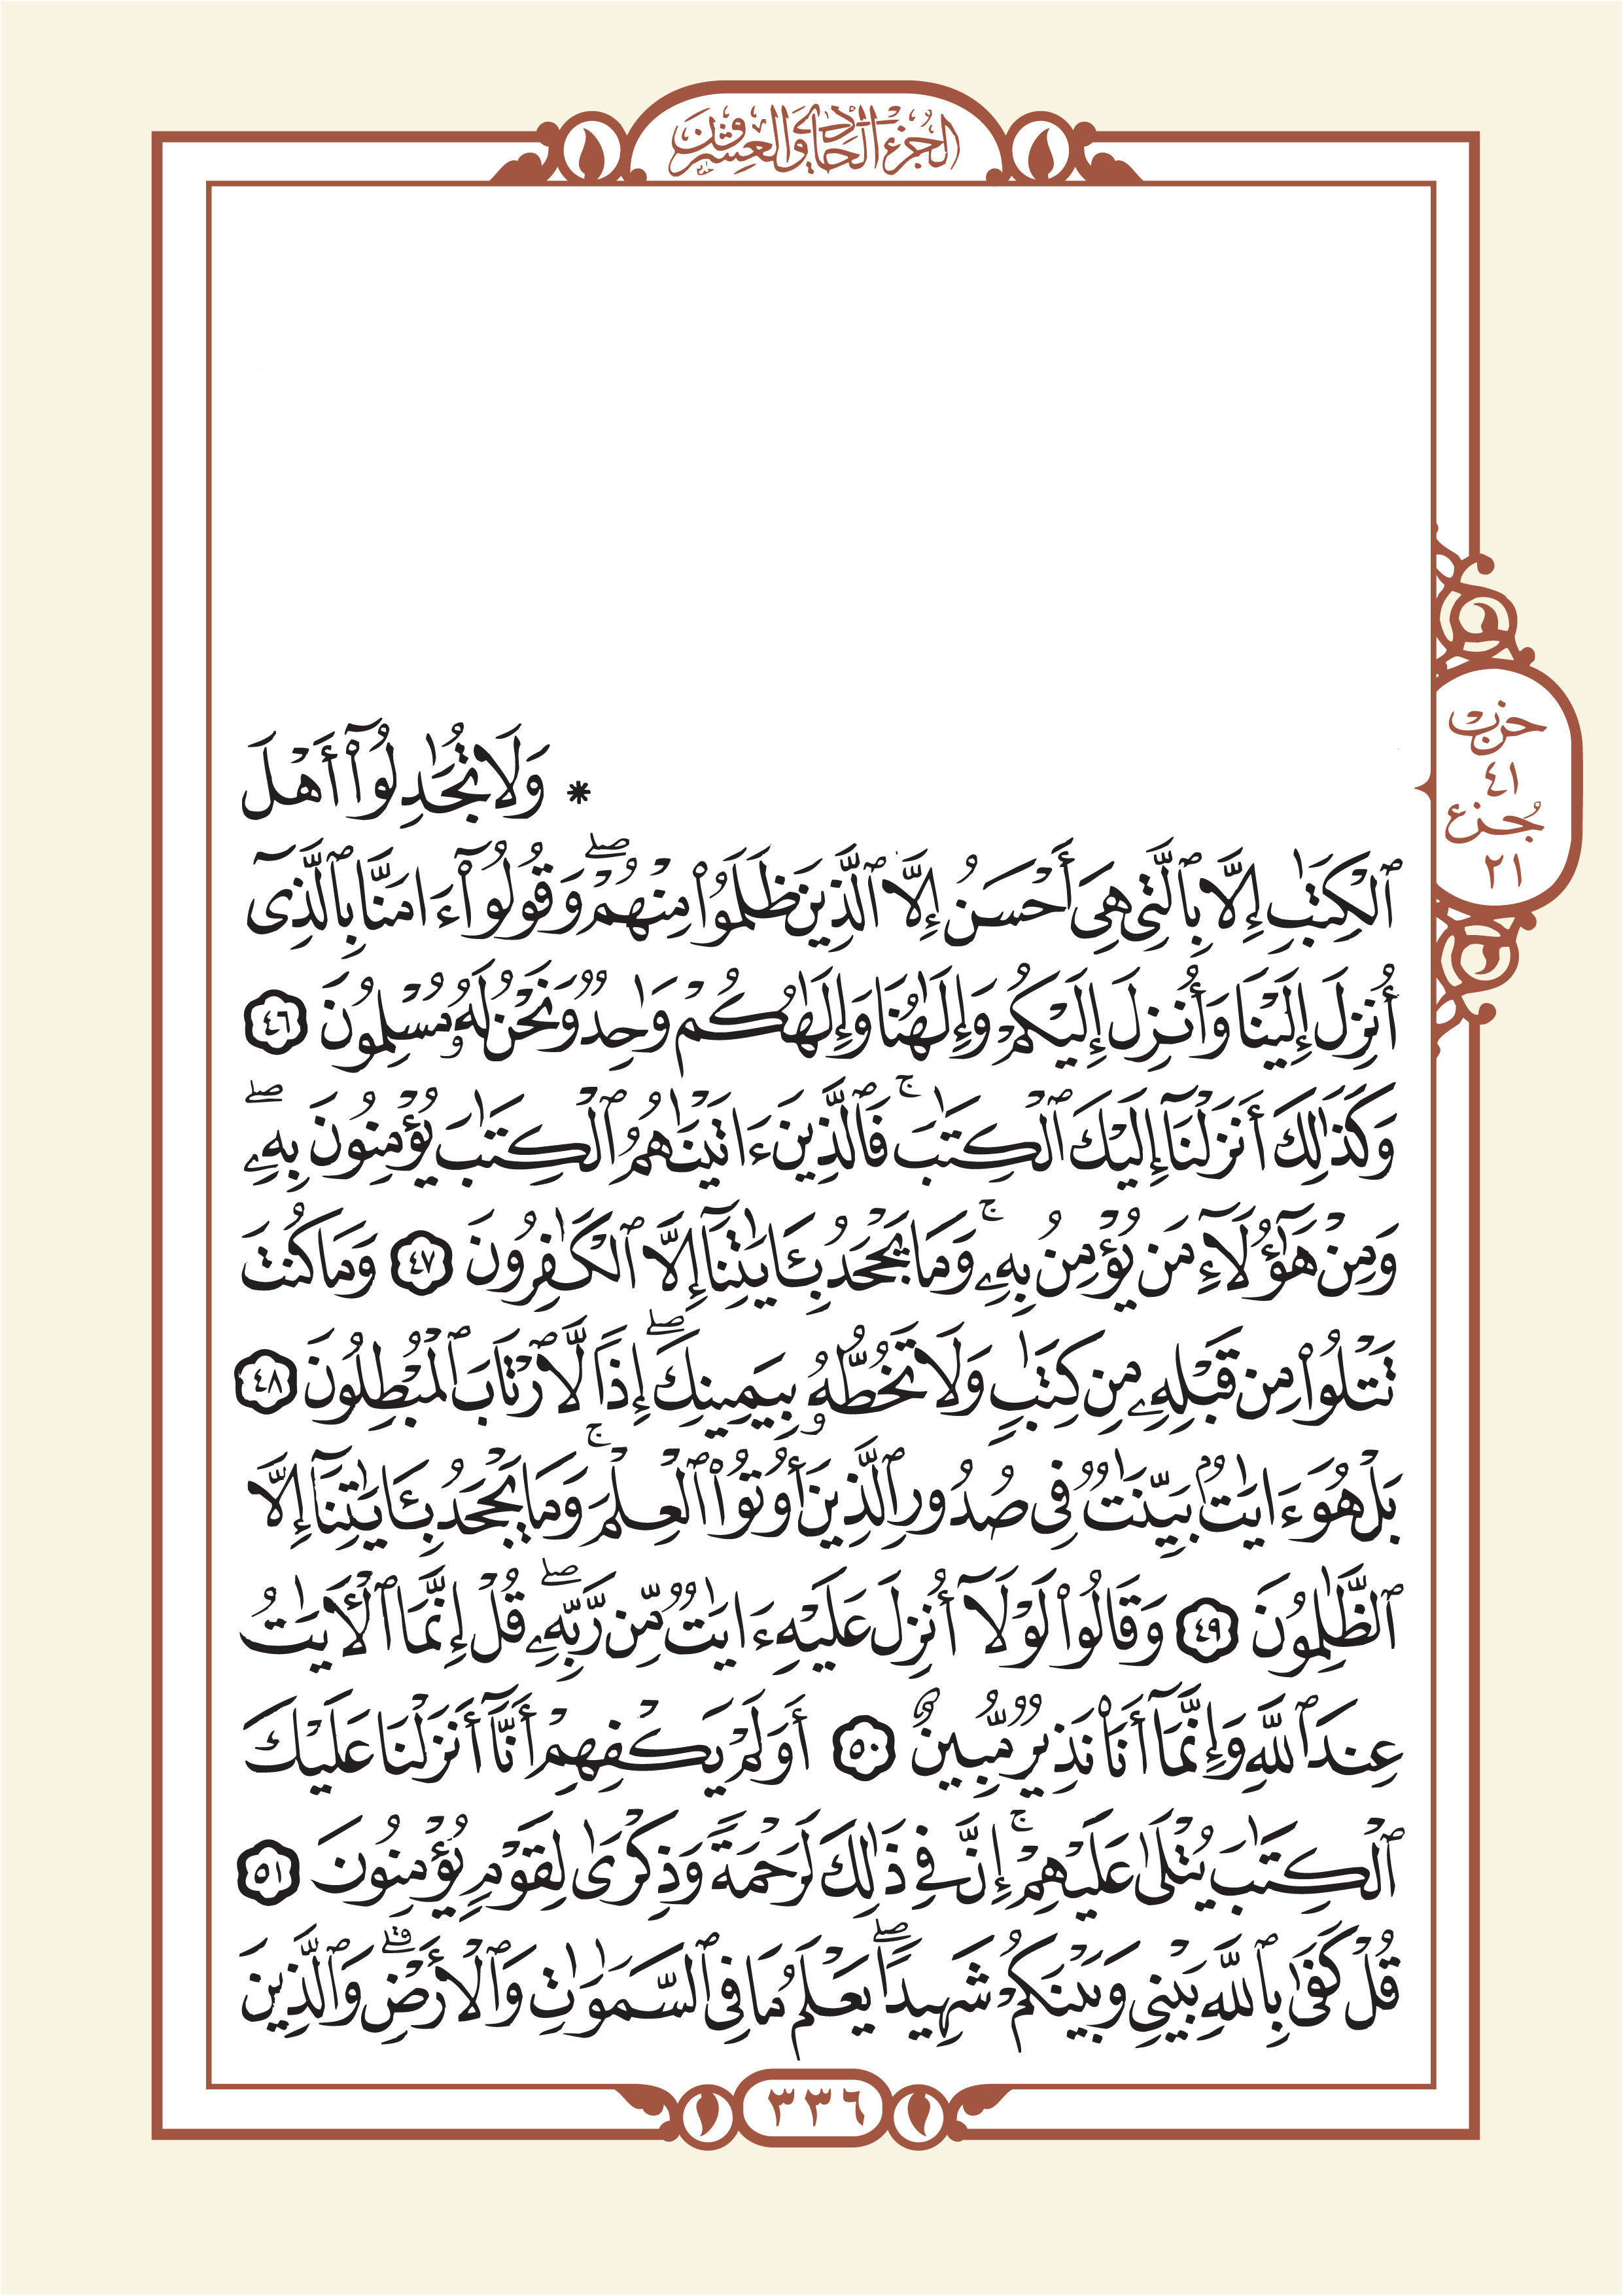 الجزء الحادي والعشرون
حزب
٤١
جزء
٢١
* وَلَا تُجَٰدِلُوٓا۟ أَهْلَ
ٱلْكِتَٰبِ إِلَّا بِٱلَّتِى هِىَ أَحْسَنُ إِلَّا ٱلَّذِينَ ظَلَمُوا۟ مِنْهُمْ ۖ وَقُولُوٓا۟ ءَامَنَّا بِٱلَّذِىٓ
أُنزِلَ إِلَيْنَا وَأُنزِلَ إِلَيْكُمْ وَإِلَٰهُنَا وَإِلَٰهُكُمْ وَٰحِدٌ وَنَحْنُ لَهُۥ مُسْلِمُونَ ٤٦
وَكَذَٰلِكَ أَنزَلْنَآ إِلَيْكَ ٱلْكِتَٰبَ ۚ فَٱلَّذِينَ ءَاتَيْنَٰهُمُ ٱلْكِتَٰبَ يُؤْمِنُونَ بِهِۦ ۖ
وَمِنْ هَٰٓؤُلَآءِ مَن يُؤْمِنُ بِهِۦ ۚ وَمَا يَجْحَدُ بِـَٔايَٰتِنَآ إِلَّا ٱلْكَٰفِرُونَ ٤٧ وَمَا كُنتَ
تَتْلُوا۟ مِن قَبْلِهِۦ مِن كِتَٰبٍ وَلَا تَخُطُّهُۥ بِيَمِينِكَ ۖ إِذًا لَّٱرْتَابَ ٱلْمُبْطِلُونَ ٤٨
بَلْ هُوَ ءَايَٰتٌۢ بَيِّنَٰتٌ فِى صُدُورِ ٱلَّذِينَ أُوتُوا۟ ٱلْعِلْمَ ۚ وَمَا يَجْحَدُ بِـَٔايَٰتِنَآ إِلَّا
ٱلظَّٰلِمُونَ ٤٩ وَقَالُوا۟ لَوْلَآ أُنزِلَ عَلَيْهِ ءَايَٰتٌ مِّن رَّبِّهِۦ ۖ قُلْ إِنَّمَا ٱلْـَٔايَٰتُ
عِندَ ٱللَّهِ وَإِنَّمَآ أَنَا۠ نَذِيرٌ مُّبِينٌ ٥٠ أَوَلَمْ يَكْفِهِمْ أَنَّآ أَنزَلْنَا عَلَيْكَ
ٱلْكِتَٰبَ يُتْلَىٰ عَلَيْهِمْ ۚ إِنَّ فِى ذَٰلِكَ لَرَحْمَةً وَذِكْرَىٰ لِقَوْمٍ يُؤْمِنُونَ ٥١
قُلْ كَفَىٰ بِٱللَّهِ بَيْنِى وَبَيْنَكُمْ شَهِيدًا ۖ يَعْلَمُ مَا فِى ٱلسَّمَٰوَٰتِ وَٱلْأَرْضِ ۗ وَٱلَّذِينَ
٣٣٦